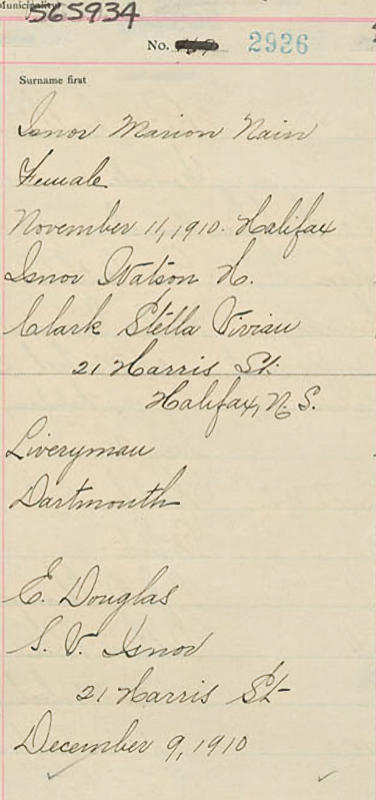 Municipality
565934
No. 2936
Surname first
Isnor Marion Nain
Female
November 11, 1910. Halifax
Isnor Watson H.
Clark Stella Vivian
21 Harris St.
Halifax, N. S.
Liveryman
Dartmouth
E. Douglas
S. V. Isnor
21 Harris St
December 9, 1910